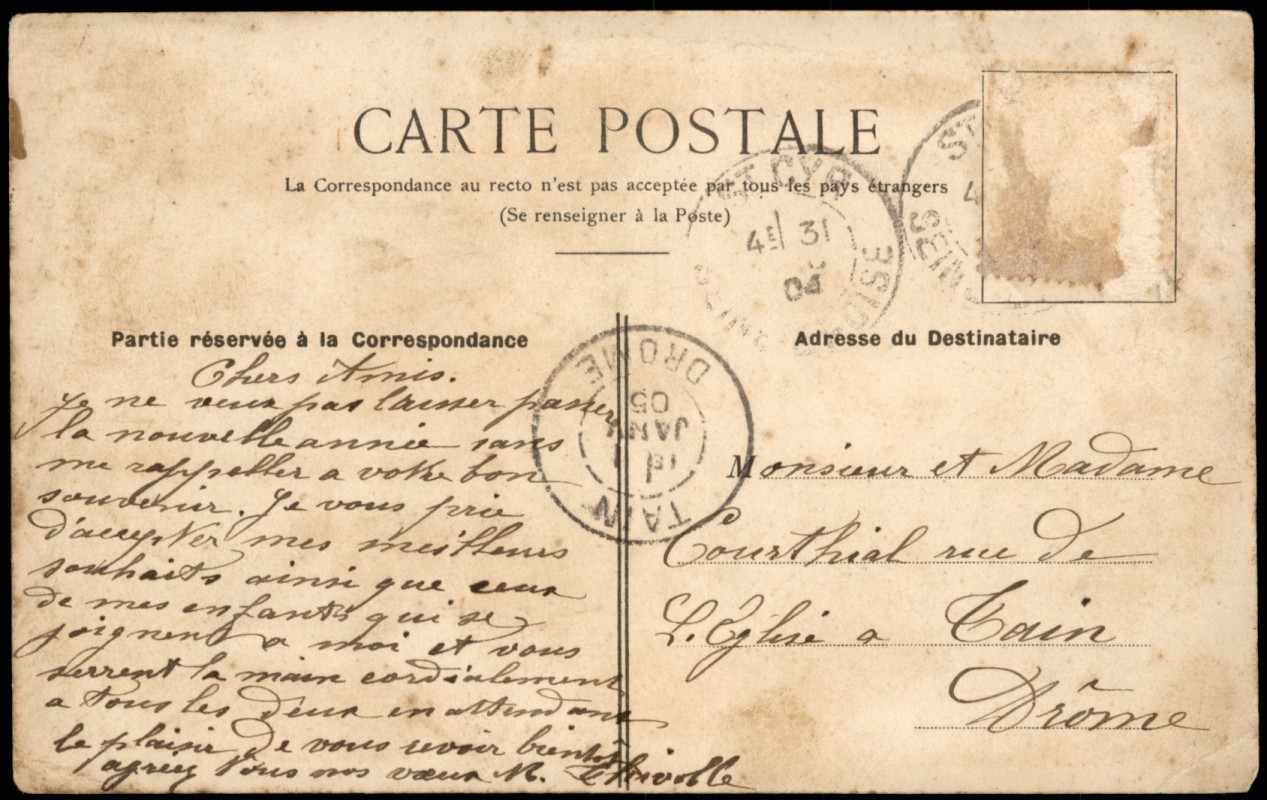 CARTE POSTALE
La Correspondance au recto n'est pas acceptée par tous les pays étrangers
(Se renseigner à la Poste)
ST CYR
4E 31
SEINE
OISE
ST
4
SEINE
Partie réservée à la Correspondance
Chers Amis.
Je ne veux pas laisser passer
la nouvelle année sans
me rappeller a votre bon
souvenir. Je vous prie
d'accepter mes meilleurs
souhaits ainsi que ceux
de mes enfants qui se
joignent a moi et vous
serrent la main cordialement
a tous les deux en attendant
le plaisir de vous revoir bientôt
agreez tous nos vœux M.
TAIN
1
JANV
05
DROME
Adresse du Destinataire
Monsieur et Madame
Courthial rue de
L'Eglise a Tain
Drôme